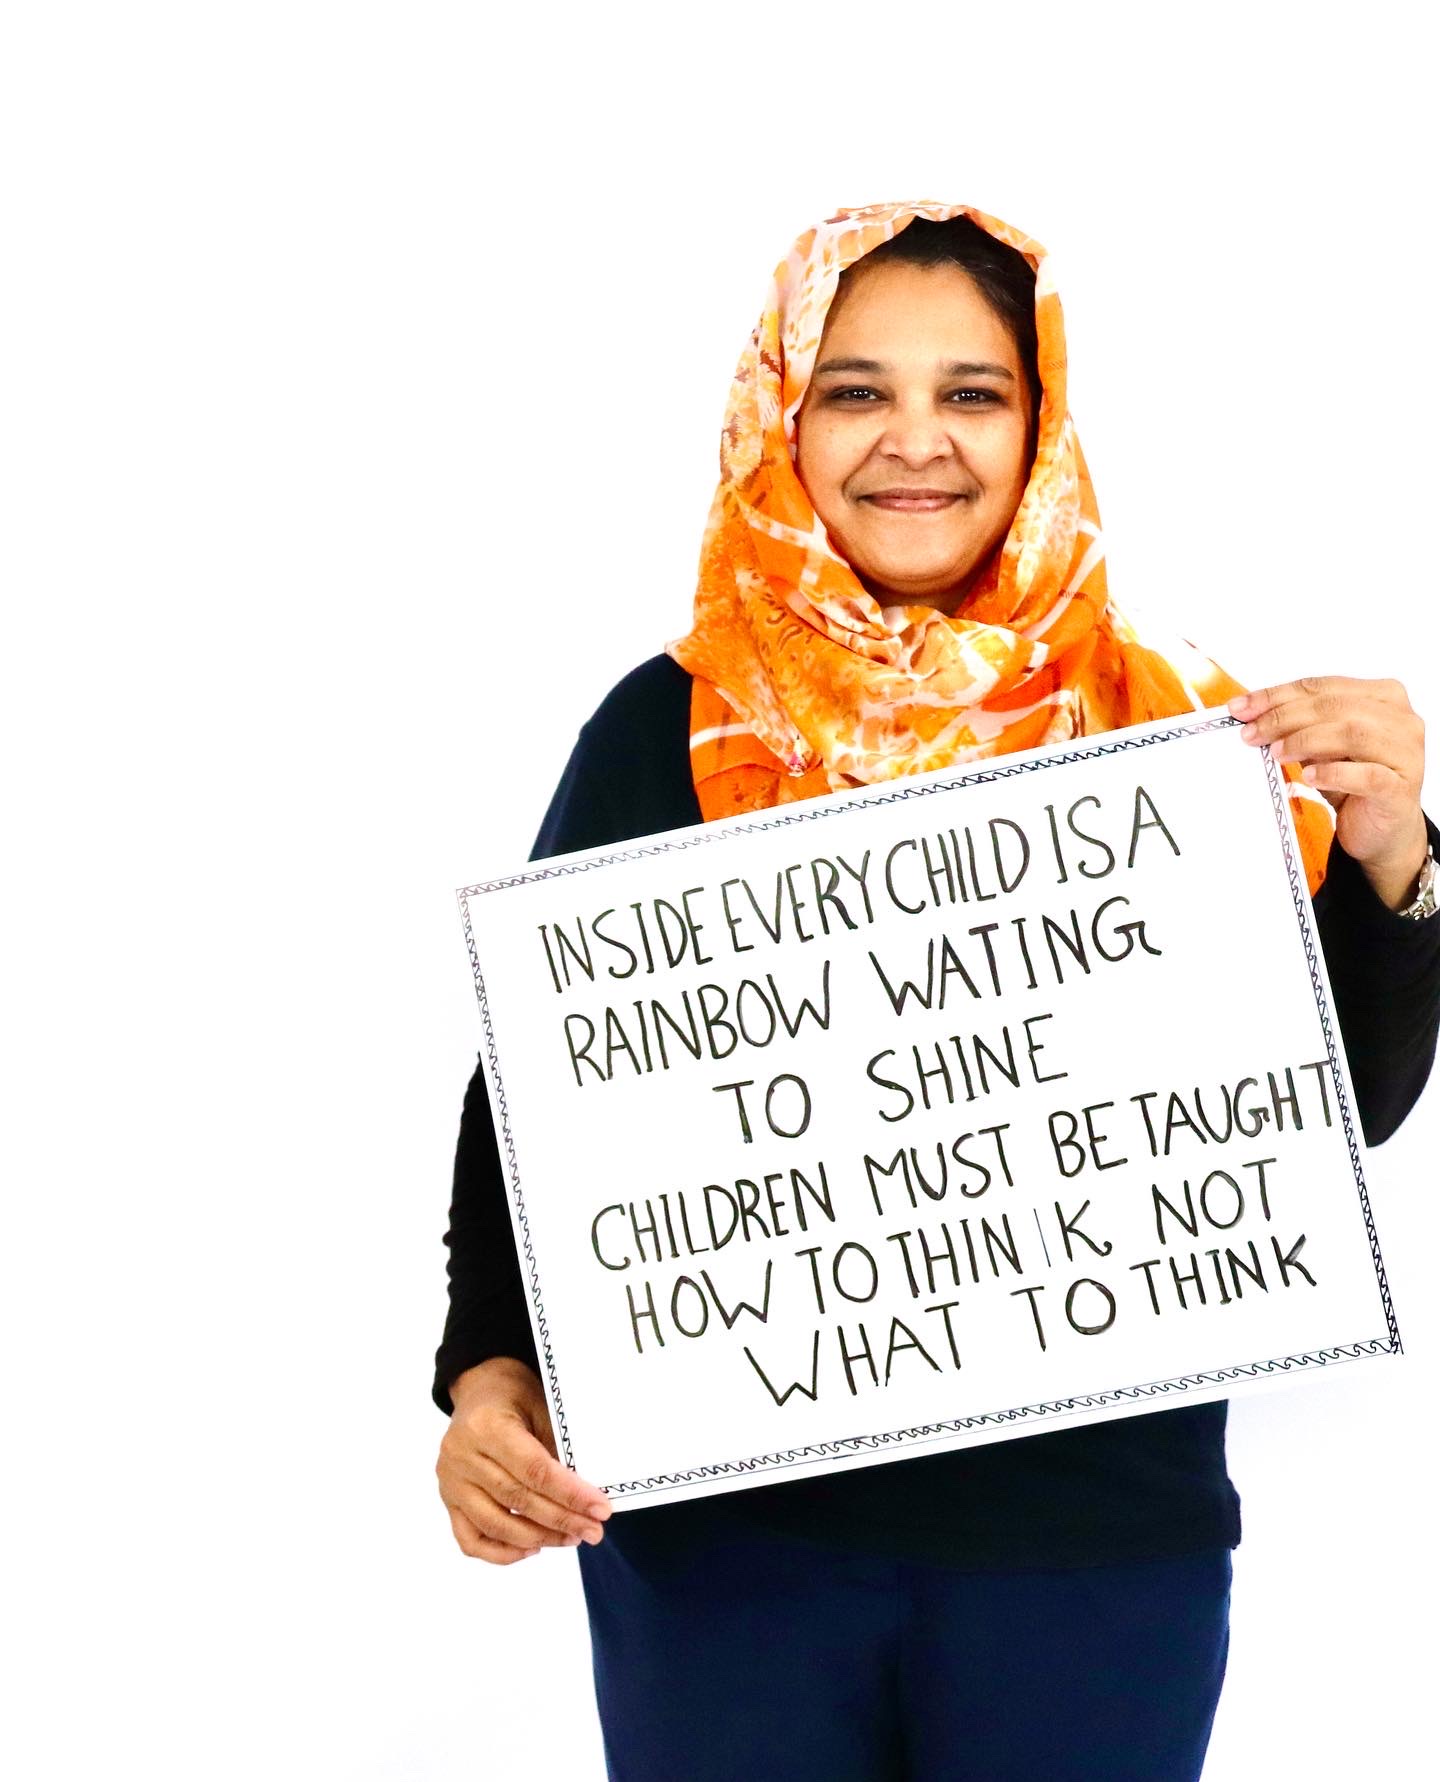 INSIDE EVERY CHILD IS A
RAINBOW WATING
TO SHINE
CHILDREN MUST BE TAUGHT
HOW TO THIN | K NOT
WHAT TO THINK